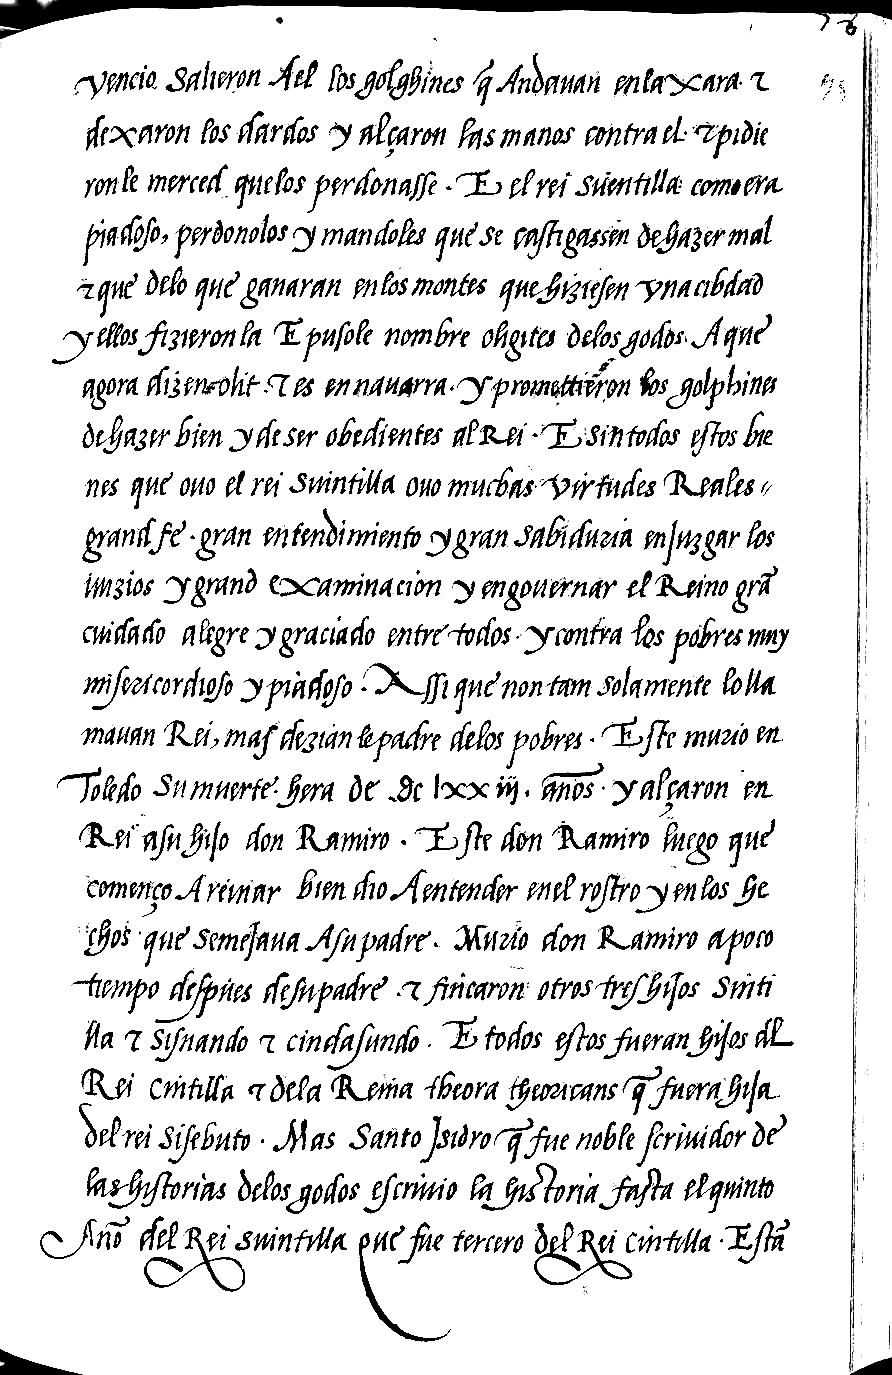 76
95
vencio Salieron Ael los golghines q̃ Andauan enla xara ⁊
dexaron los dardos y alçaron las manos contra el ⁊ pidie
ron le merced que los perdonasse . E el rei suentilla como era
piadoso, perdonolos y mandoles que se castigassen de hazer mal
⁊ que delo que ganaran en los montes que hiziesen vna cibdad
y ellos fizieron la E pusole nombre oligites delos godos. A que
agora dizen olit . ⁊ es en nauarra . y promettieron los golphines
de hazer bien y de ser obedientes al Rei . E sin todos estos bie
nes que ouo el rei suintilla ouo muchas virtudes Reales
grand fe . gran entendimiento y gran sabiduria en Juzgar los
iuizios y grand examinacion y en gouernar el Reino grã
cuidado alegre y graciado entre todos . y contra los pobres muy
misericordioso y piadoso . Assi que non tam solamente lo lla
mauan Rei, mas dezian le padre delos pobres . Este murio en
Toledo su muerte . hera de dc lxxiij . años . y alçaron en
Rei a su hijo don Ramiro . Este don Ramiro luego que
començo A reinar bien dio A entender en el rostro y en los he
chos que semejaua A su padre . Murio don Ramiro a poco
tiempo despues de su padre . ⁊ fincaron otros tres hijos sinti
lla ⁊ sisnando ⁊ cindasundo . E todos estos fueran hijos dl
Rei cintilla ⁊ dela Reina theora theoricans q̃ fuera hija
del rei sisebuto . Mas santo Isidro q̃ fue noble scriuidor de
las historias delos godos escriuio la historia fasta el quinto
Año del Rei suintilla que fue tercero del Rei cintilla . Està